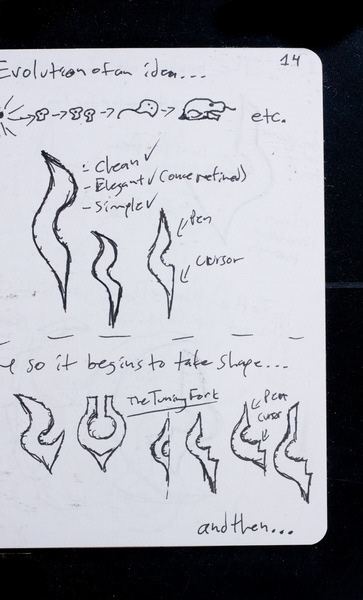 14
Evolution of an idea...
etc.
: Clean ✓
- Elegant ✓ (once refined)
- Simple ✓
Pen
cursor
so it begins to take shape...
The Tuning Fork
Pen
cursor
and then...